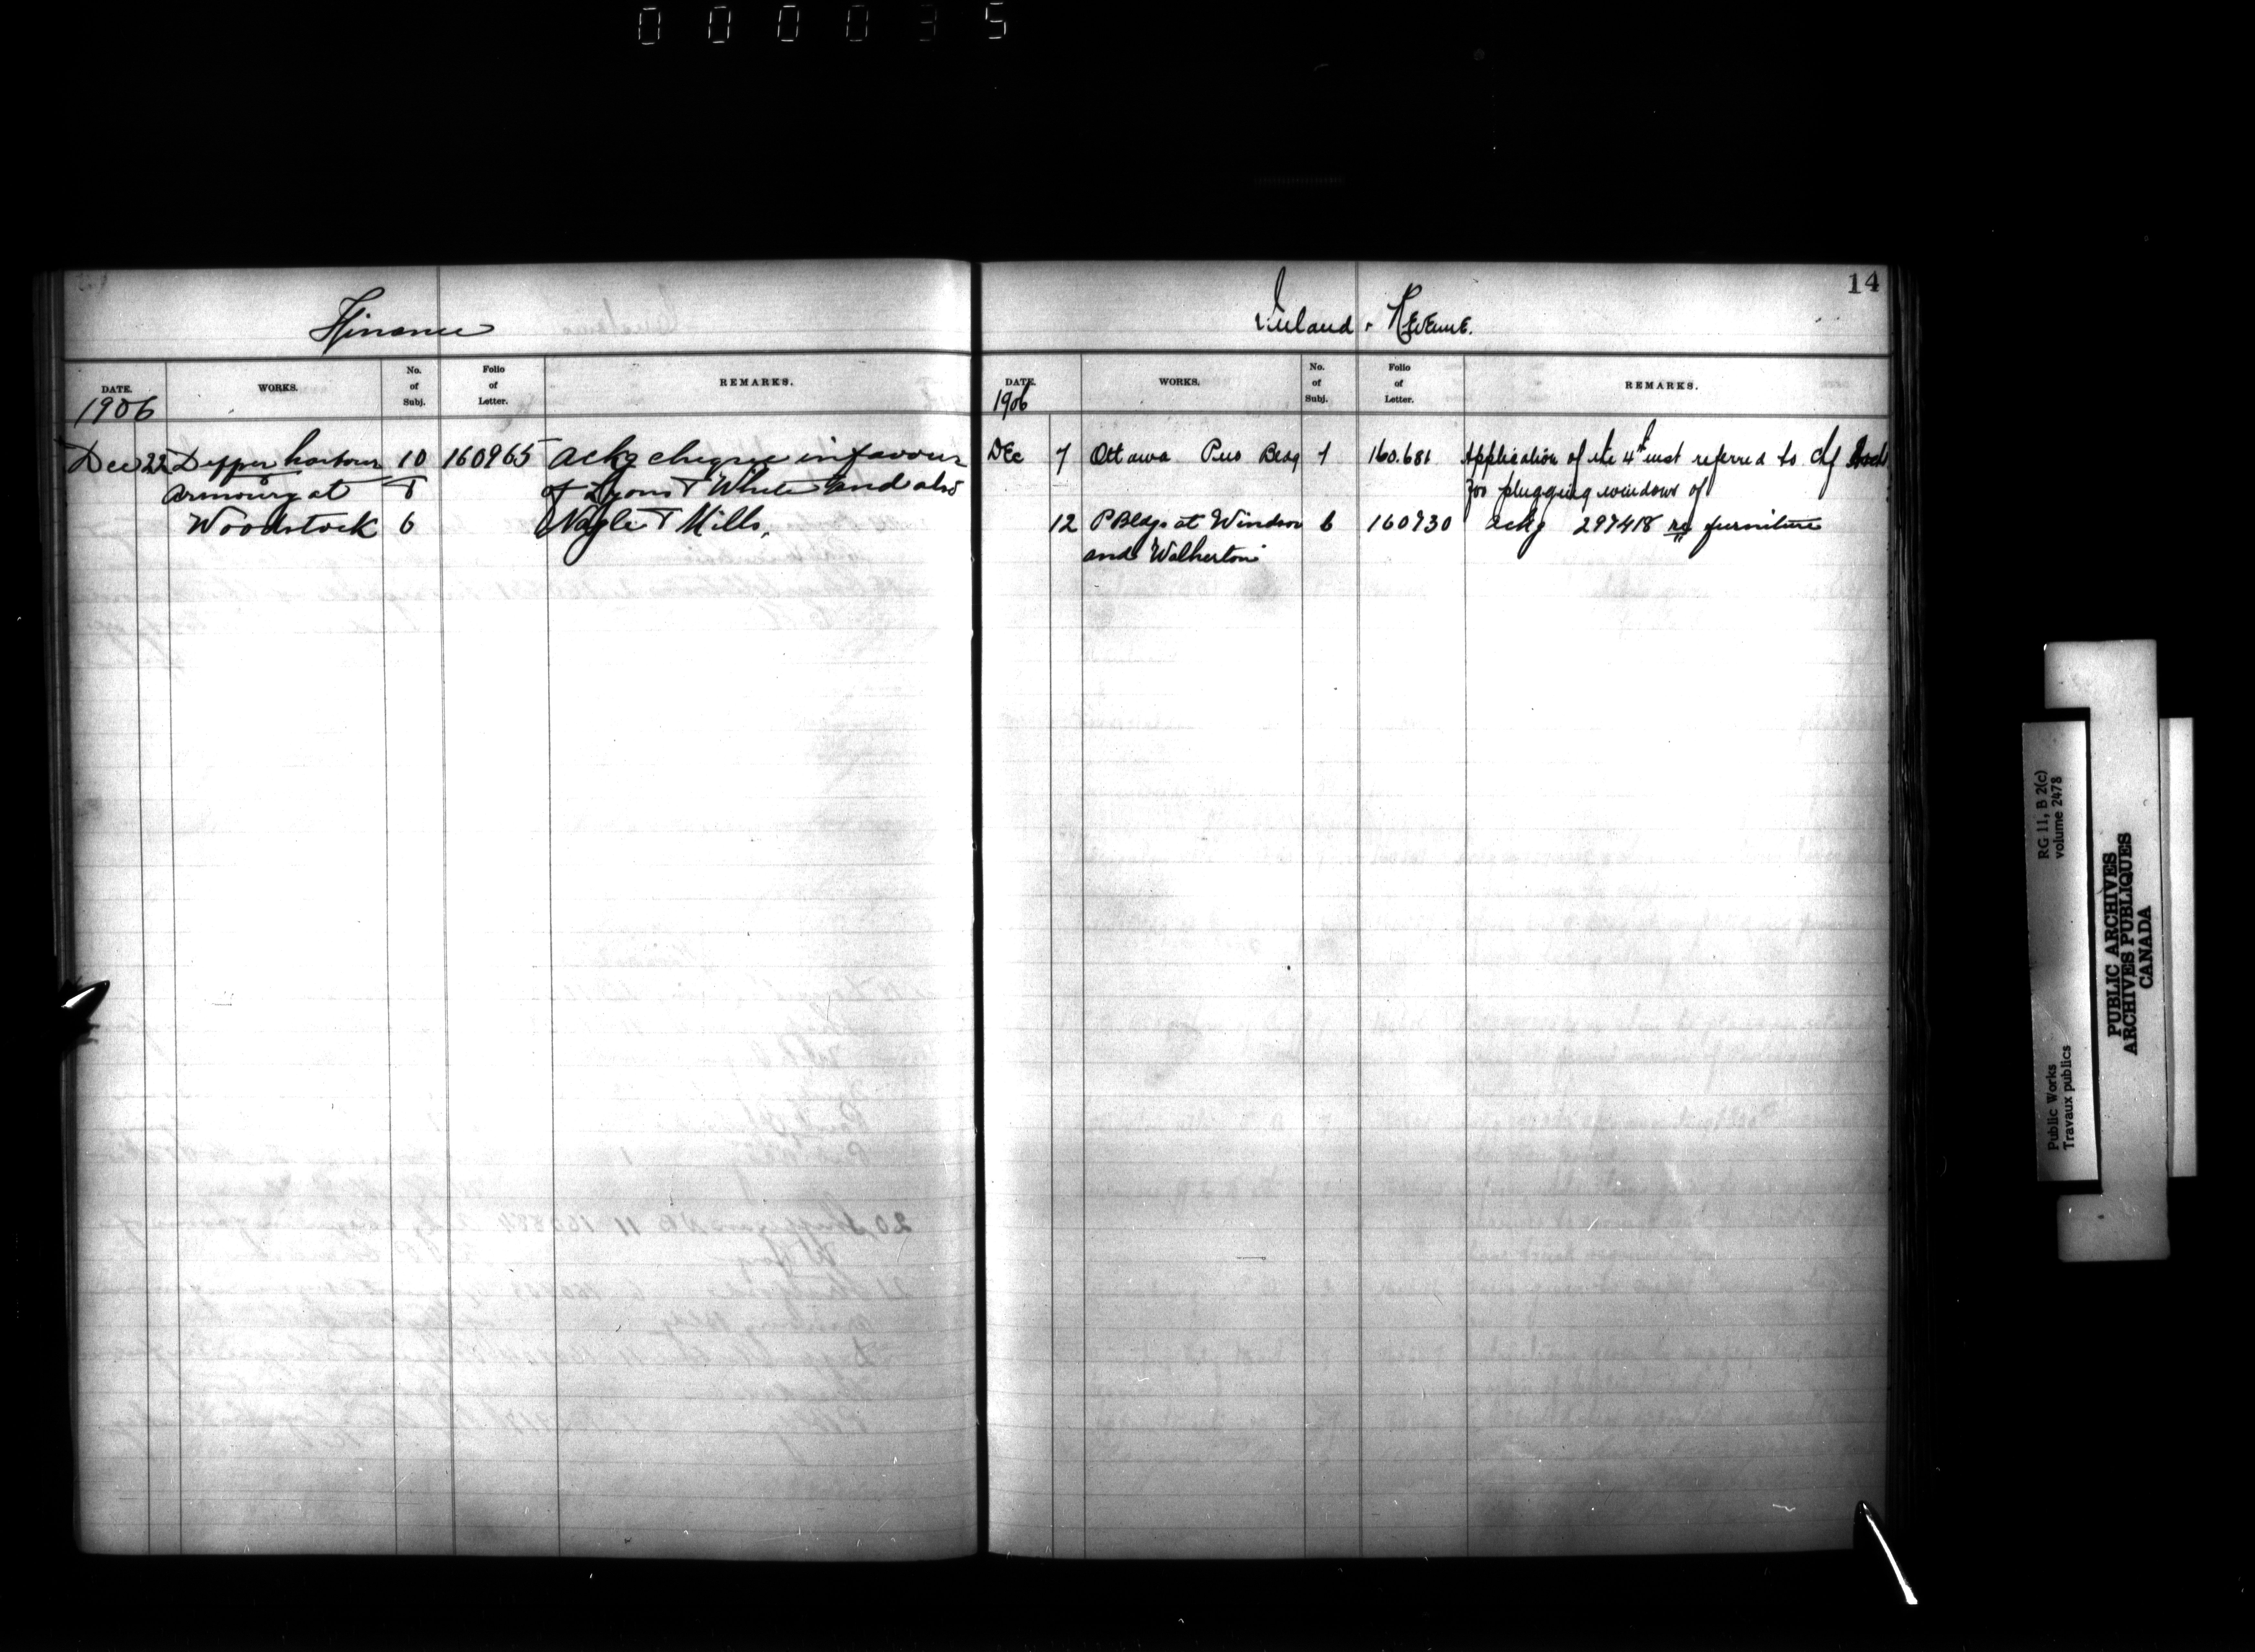 000035
Finance
DATE. WORKS. No. of Subj. Folio of Letter. REMARKS.
1906
Dec 22 Dipper harbour 10 160965 Ackg cheque in favour
Armoury at & of Lyons & White and also
Woodstock 6 Nagle & Mills.
14
Inland Revenue.
DATE. WORKS. No. of Subj. Folio of Letter. REMARKS.
1906
Dec 7 Ottawa Pub Bldg 1 160.681 Application of the 4th inst referred to Chf Arch
for plugging windows of
12 P Bldgs at Windsor 6 160730 Ackg 297418 re furniture
and Walkerton
RG 11, B 2(c)
volume 2478
Public Works
Travaux publics
PUBLIC ARCHIVES
ARCHIVES PUBLIQUES
CANADA